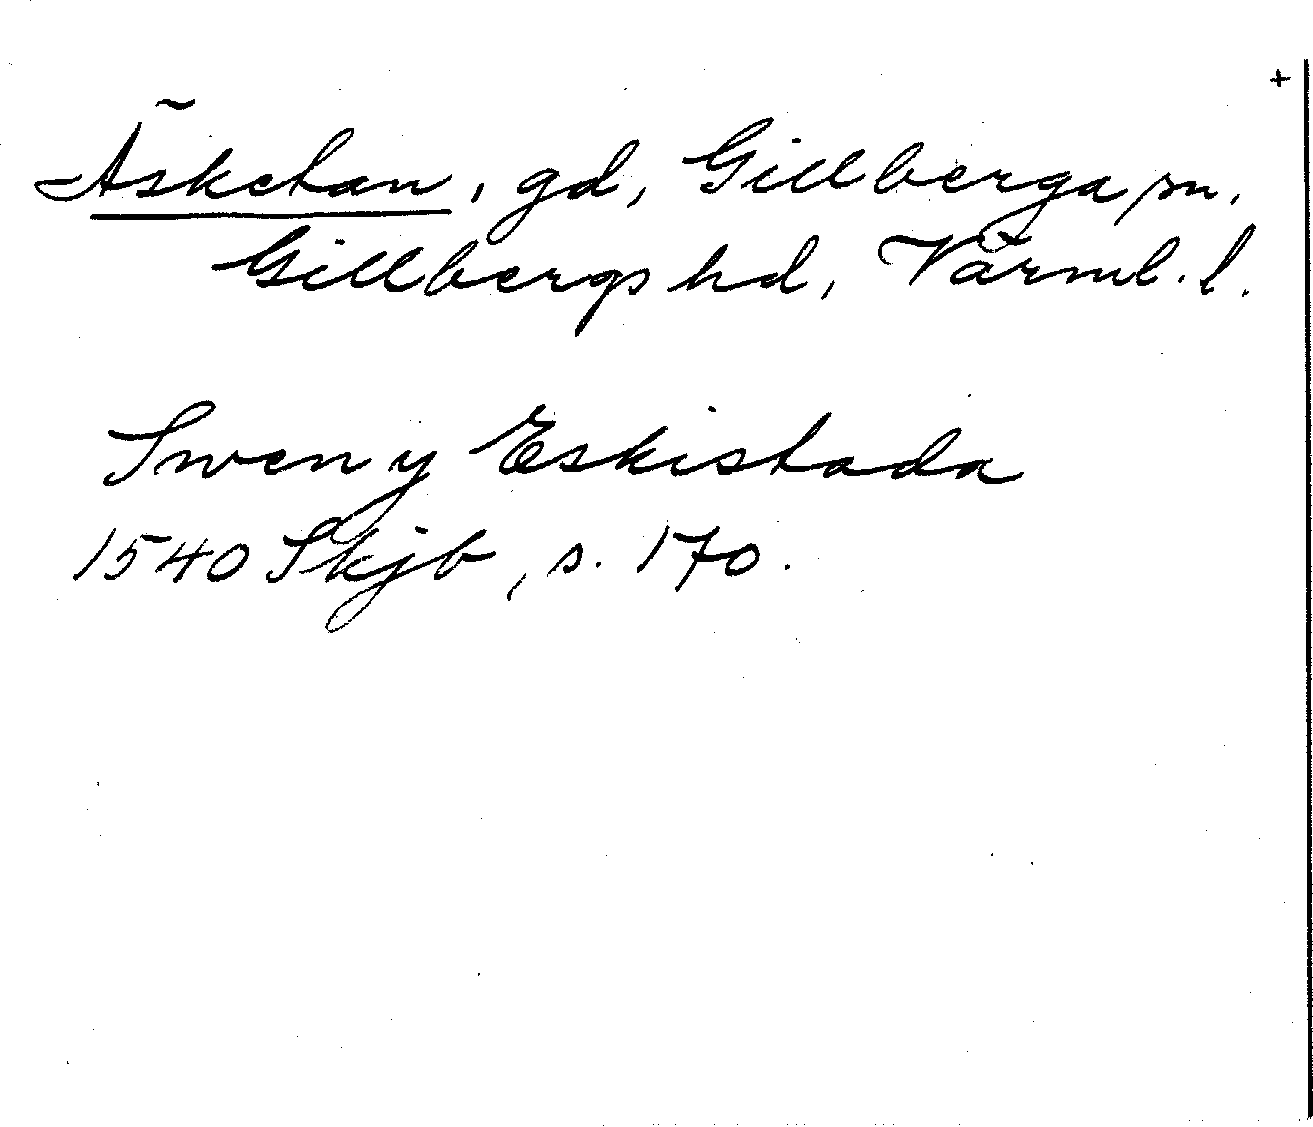 +
Äsketan, gd, Gillberga sn,
Gillbergs hd, Värml. l.
Swen y Eskistada
1540 Skjb, s. 170.